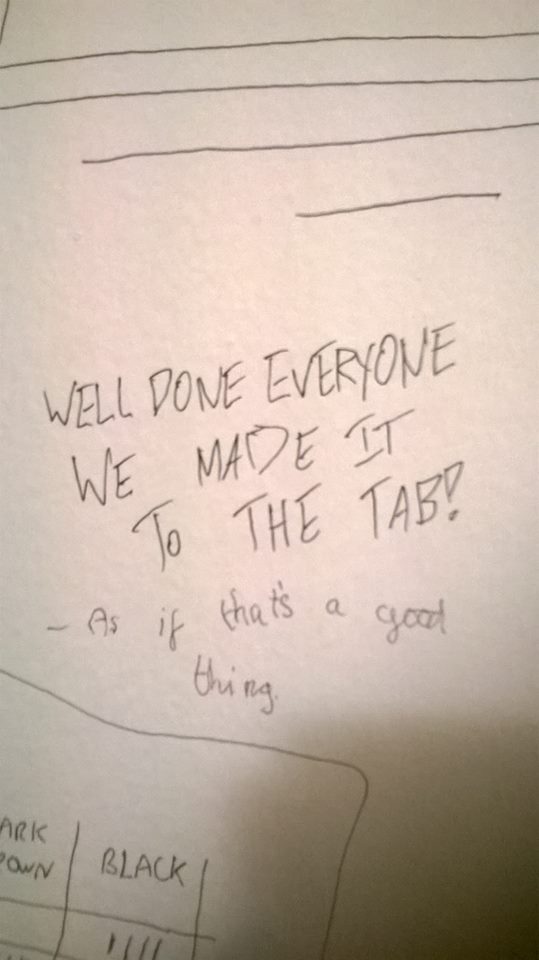 WELL DONE EVERYONE
WE MADE IT
TO THE TAB!
- As if that's a good
thing.
ARK
OWN BLACK